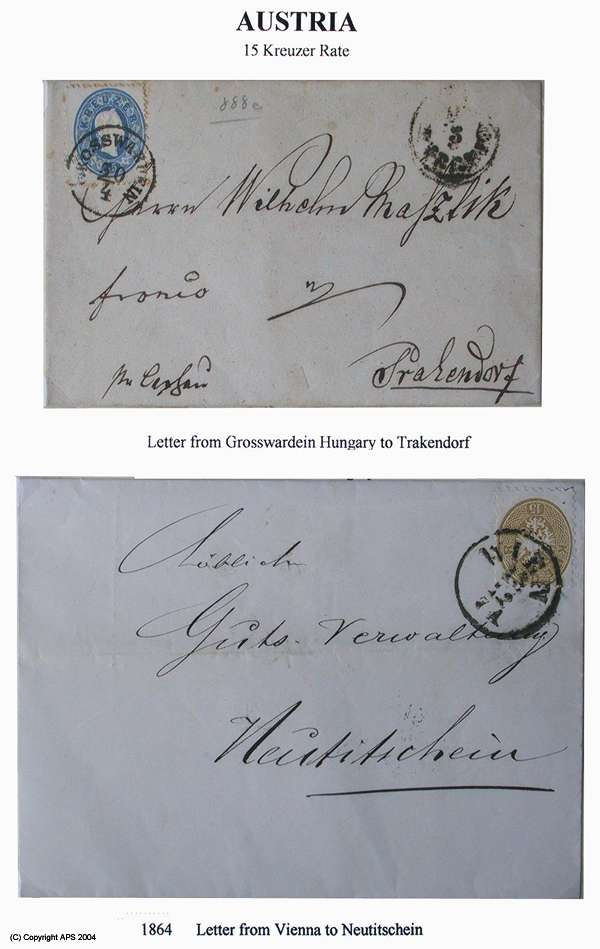 AUSTRIA
15 Kreuzer Rate
888e
KREUZER
GROSSWARDEIN
30
4
5
Herrn Wilhelm Raszlik
franco
Trakendorf
Letter from Grosswardein Hungary to Trakendorf
15
WIEN
Löblich
Guts-Verwaltung
Neutitschein
1864 Letter from Vienna to Neutitschein
(C) Copyright APS 2004